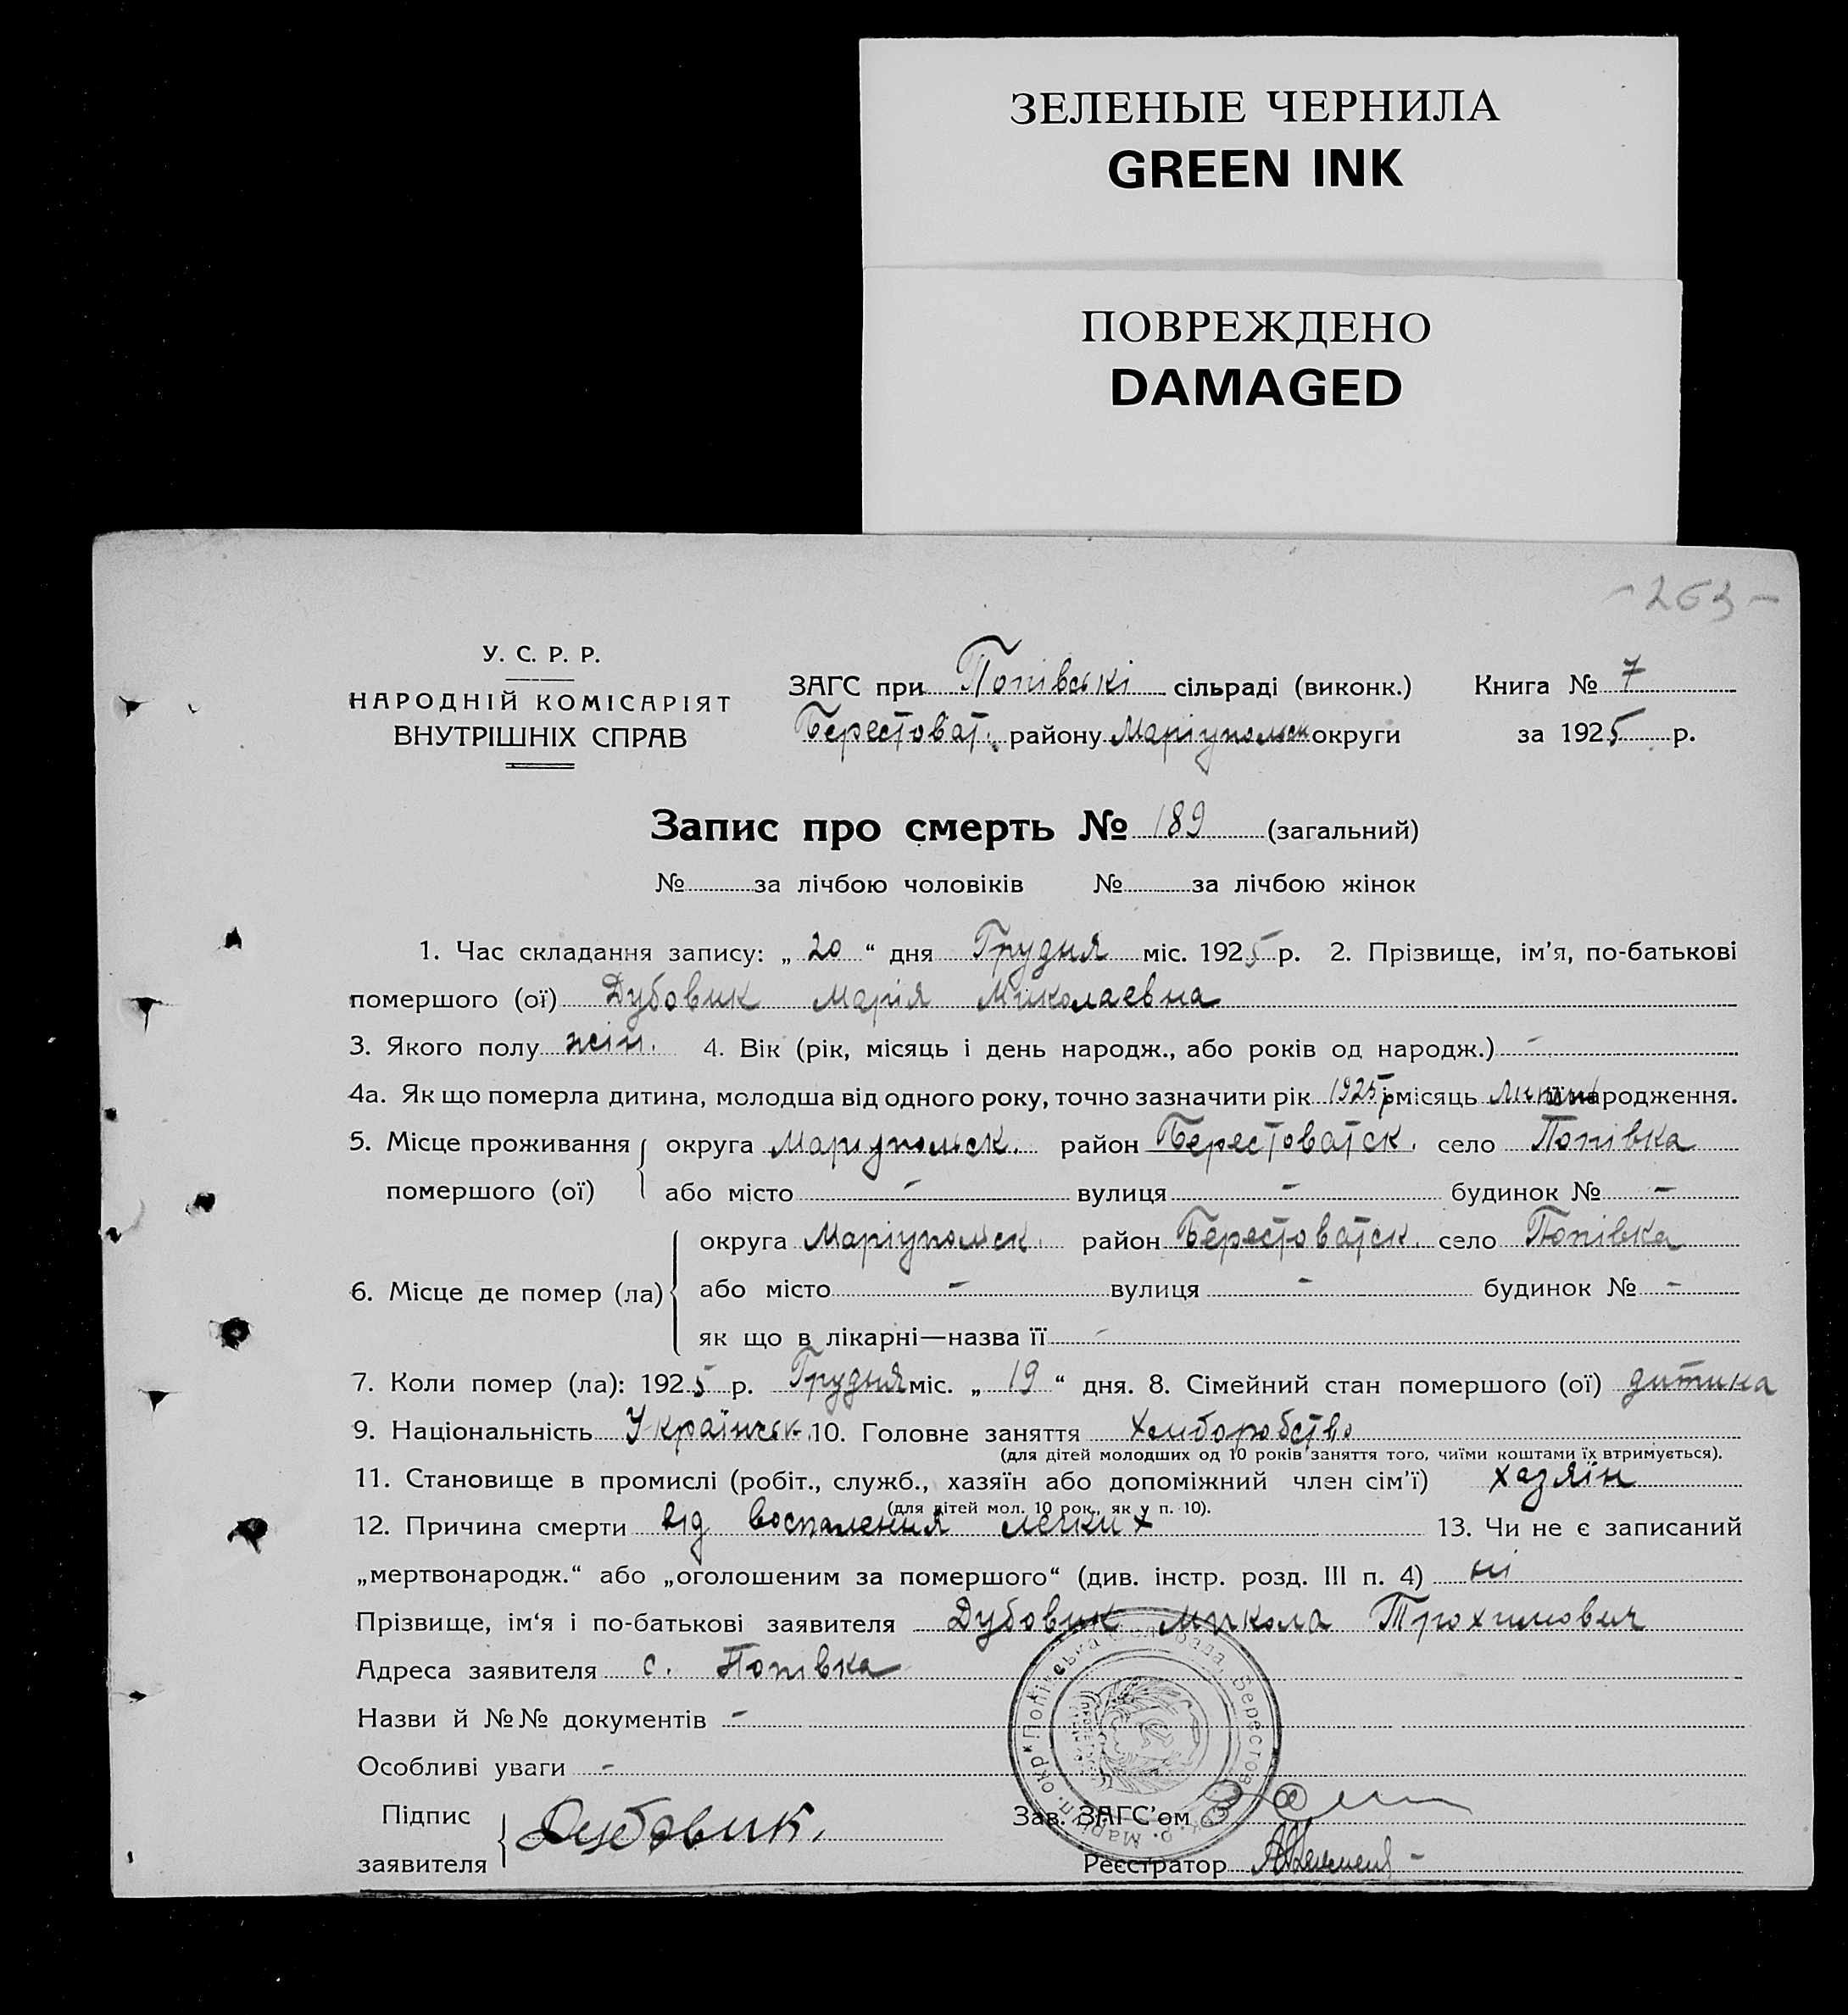 ЗЕЛЕНЫЕ ЧЕРНИЛА
GREEN INK
ПОВРЕЖДЕНО
DAMAGED
- 263 -
У. С. Р. Р.
НАРОДНІЙ КОМІСАРІЯТ
ВНУТРІШНІХ СПРАВ
ЗАГС при Попівські сільраді (виконк.) Книга № 7
Берестоват. району Маріупольськ округи за 1925 р.
Запис про смерть № 189 (загальний)
№ за лічбою чоловіків № за лічбою жінок
1. Час складання запису: „ 20 “ дня Грудня міс. 1925 р. 2. Прізвище, ім’я, по-батькові
помершого (ої) Дубовик Марія Миколаевна
3. Якого полу жін. 4. Вік (рік, місяць і день народж., або років од народж.) -
4а. Як що померла дитина, молодша від одного року, точно зазначити рік 1925 р і місяць народження.
5. Місце проживання помершого (ої) округа Маріупольск. район Берестоватск. село Попівка
або місто - вулиця - будинок № -
6. Місце де помер (ла) округа Маріупольск. район Берестоватск. село Попівка
або місто - вулиця - будинок № -
як що в лікарні—назва її -
7. Коли помер (ла): 1925 р. Грудня міс. „ 19 “ дня. 8. Сімейний стан помершого (ої) дитина
9. Національність Українськ. 10. Головне заняття Хліборобство
(для дітей молодших од 10 років заняття того, чиїми коштами їх втримується).
11. Становище в промислі (робіт., служб., хазяїн або допоміжний член сім’ї) хазяїн
(для дітей мол. 10 рок., як у п. 10).
12. Причина смерти від воспаления легких 13. Чи не є записаний
„мертвонародж.“ або „оголошеним за помершого“ (див. інстр. розд. III п. 4) ні
Прізвище, ім‘я і по-батькові заявителя Дубовик Микола Трохимович
Адреса заявителя с. Попівка
Назви й №№ документів -
Особливі уваги -
Підпис заявителя Дубовик.
Зав. ЗАГС’ом
Реєстратор